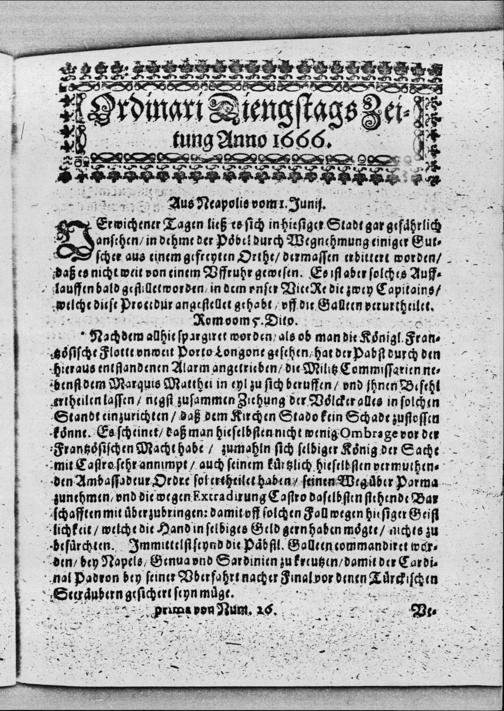 Ordinari Diengstags Zei-
tung Anno 1666.
Aus Neapolis vom 1. Junij.
DErwichener Tagen ließ es sich in hiesiger Stadt gar gefährlich
ansehen / in dehme der Pöbel durch Wegnehmung einiger Gut-
scher aus einem gefreyten Orthe / dermassen erbittert worden /
daß es nicht weit von einem Vffruhr gewesen. Es ist aber solches Auff-
lauffen bald gestillet worden / in dem vnser Vice Re die zwey Capitains /
welche diese Procedur angestellet gehabt / vff die Galleen verurtheilet.
Rom vom 5. Dito.
Nachdem allhie spargiret worden / als ob man die Königl. Fran-
tzösische Flotte vnweit Porto Longone gesehen / hat der Pabst durch den
hieraus entstandenen Alarm angetrieben / die Militz Commissarien ne-
benst dem Marquis Matthei in eyl zu sich beruffen / und ihnen Befehl
ertheilen lassen / negst zusammen Ziehung der Völcker alles in solchen
Standt einzurichten / daß dem Kirchen Stado kein Schade zustossen
könne. Es scheinet / daß man hieselbsten nicht wenig Ombrage vor der
Frantzösischen Macht habe / zumahln sich selbiger König der Sache
mit Castro sehr annimpt / auch seinem kürtzlich hieselbsten vermuthen-
den Ambassadeur Ordre sol ertheilet haben / seinen Weg über Parma
zunehmen / und die wegen Extradirung Castro daselbsten stehende Bar
schafften mit überzubringen: damit vff solchen Fall wegen hiesiger Geist
lichkeit / welche die Hand in selbiges Geld gern haben mögte / nichtes zu
befürchten. Immittelst seynd die Päbstl. Galleen commandiret wor-
den / bey Napels / Genua vnd Sardinien zu kreutzen / damit der Cardi-
nal Padron bey seiner Vberfahrt nacher Final vor denen Türckischen
Seeräubern gesichert seyn müge.
prima von Num. 26. Ve-